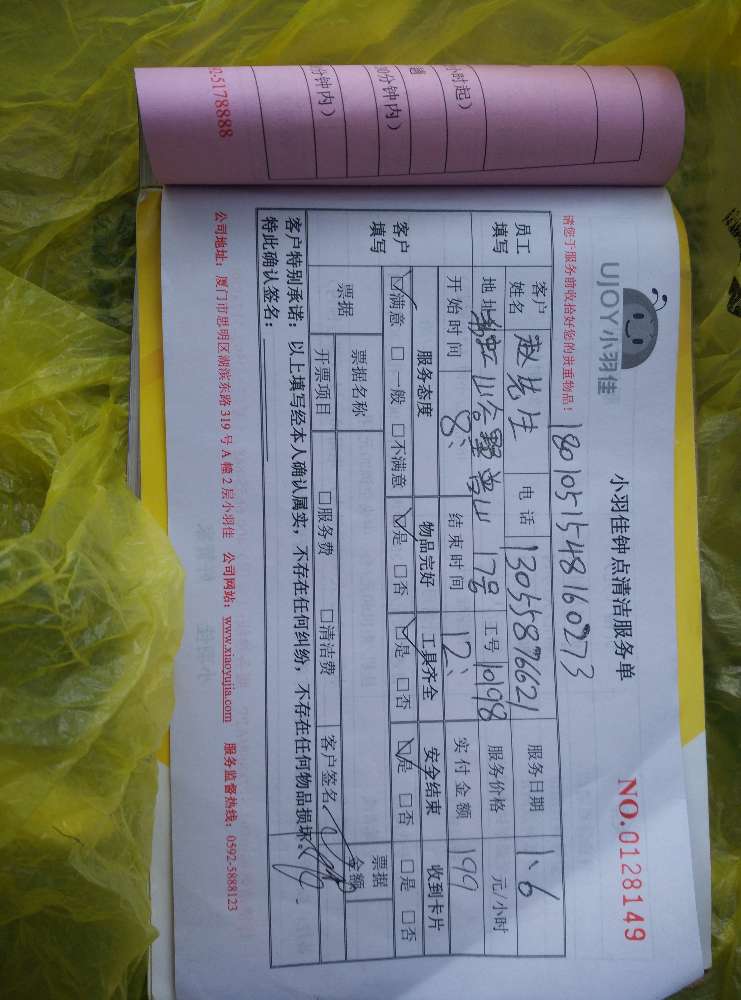 小时起）
0分钟内）
分钟内）
02-5178888
UJOY小羽佳
小羽佳钟点清洁服务单
NO.0128149
1801051548160273
请您于服务前收拾好您的贵重物品！
员工填写 客户姓名 赵先生 电话 13055876621 服务日期 1、6
地址 17号 工号 1098 服务价格 元/小时
开始时间 8、 结束时间 12、 实付金额 199
客户填写 服务态度 物品完好 工具齐全 安全结束 收到卡片
☑满意 □一般 □不满意 ☑是 □否 ☑是 □否 ☑是 □否 □是 □否
票据 票据名称 票据金额
开票项目 □服务费 □清洁费 客户签名
客户特别承诺：以上填写经本人确认属实，不存在任何纠纷，不存在任何物品损坏。
特此确认签名：
公司地址：厦门市思明区湖滨东路319号A幢2层小羽佳 公司网站：www.xiaoyujia.com 服务监督热线：0592-5888123